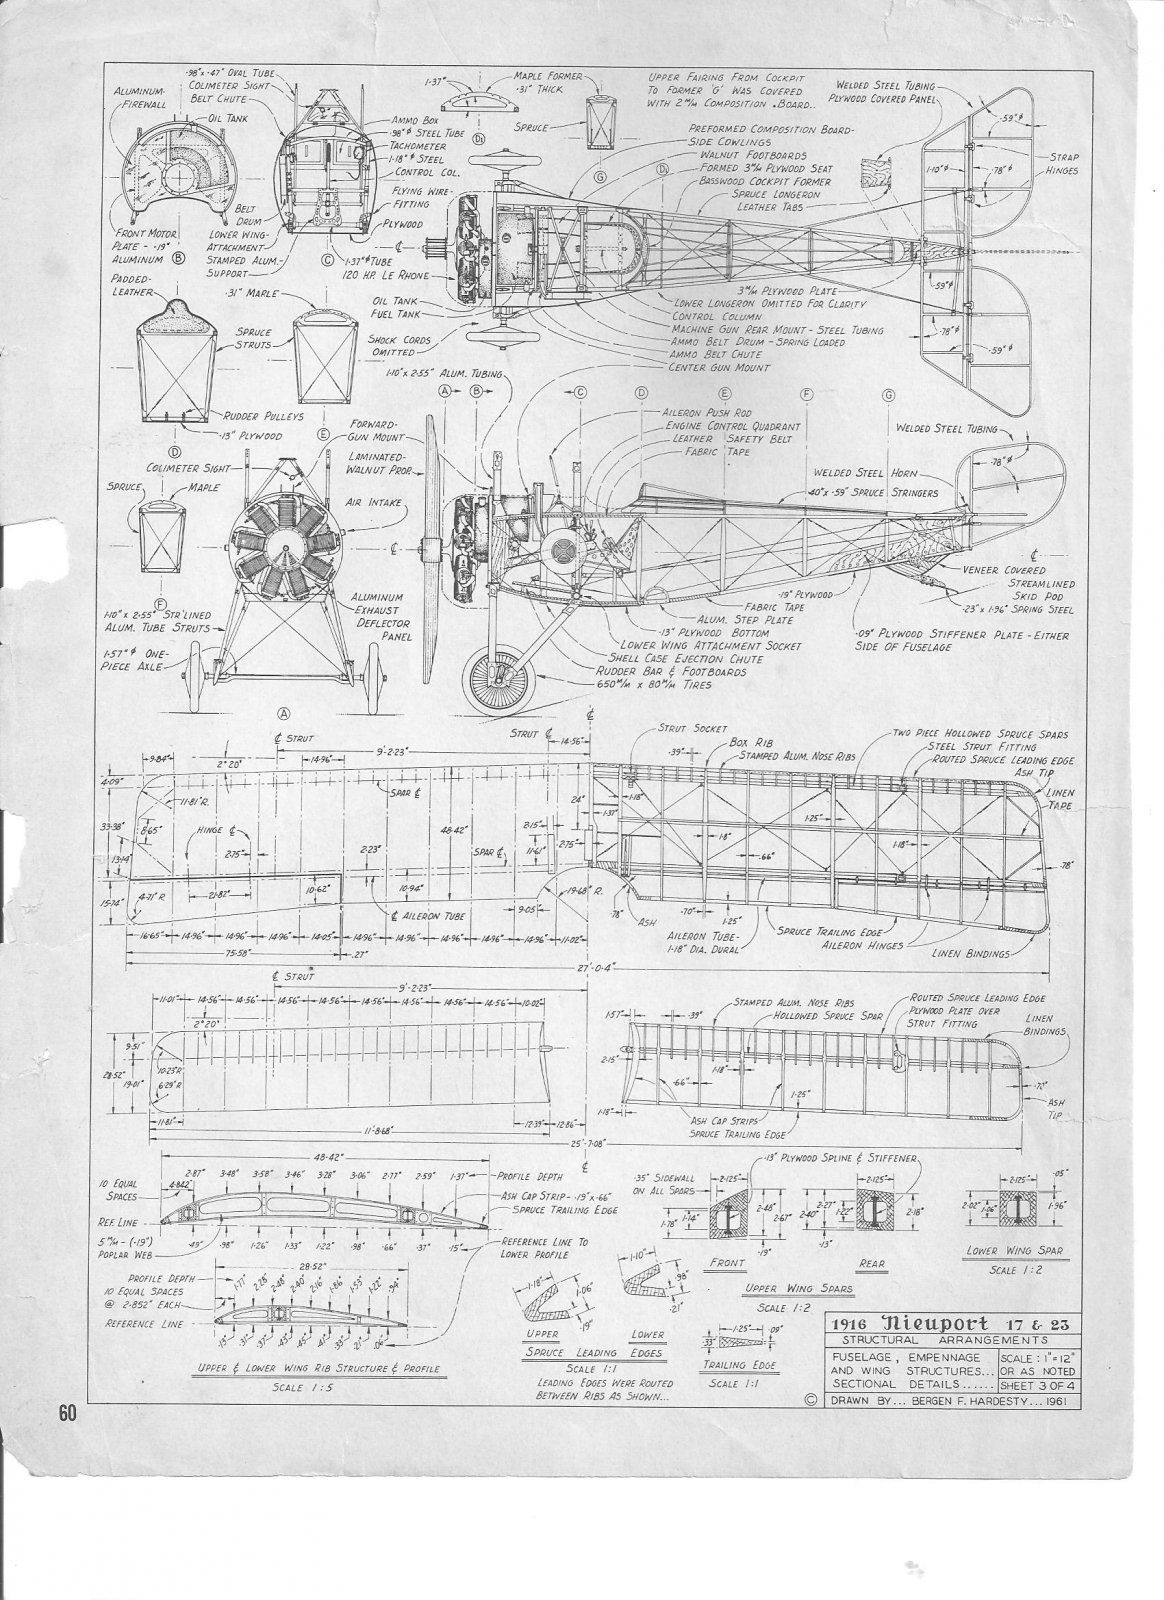 .98" x .47" OVAL TUBE
COLIMETER SIGHT
BELT CHUTE
ALUMINUM
FIREWALL
OIL TANK
AMMO BOX
.98" ⌀ STEEL TUBE
TACHOMETER
1.18" ⌀ STEEL
CONTROL COL.
FLYING WIRE-
FITTING
PLYWOOD
BELT
DRUM
LOWER WING-
ATTACHMENT
STAMPED ALUM.-
SUPPORT
FRONT MOTOR
PLATE - .19"
ALUMINUM
B
C
1.37" ⌀ TUBE
120 H.P. LE RHONE
1.37"
MAPLE FORMER
.31" THICK
D1
SPRUCE
G
UPPER FAIRING FROM COCKPIT
TO FORMER 'G' WAS COVERED
WITH 2 M/M COMPOSITION BOARD..
WELDED STEEL TUBING
PLYWOOD COVERED PANEL
PREFORMED COMPOSITION BOARD-
SIDE COWLINGS
WALNUT FOOTBOARDS
FORMED 3 M/M PLYWOOD SEAT
BASSWOOD COCKPIT FORMER
SPRUCE LONGERON
LEATHER TABS
.59" ⌀
1.10" ⌀
.78" ⌀
STRAP
HINGES
.59" ⌀
.78" ⌀
.59" ⌀
OIL TANK
FUEL TANK
SHOCK CORDS
OMITTED
3 M/M PLYWOOD PLATE
LOWER LONGERON OMITTED FOR CLARITY
CONTROL COLUMN
MACHINE GUN REAR MOUNT - STEEL TUBING
AMMO BELT DRUM - SPRING LOADED
AMMO BELT CHUTE
CENTER GUN MOUNT
PADDED-
LEATHER
.31" MAPLE
SPRUCE
STRUTS
RUDDER PULLEYS
.13" PLYWOOD
D
E
1.10" x 2.55" ALUM. TUBING
A B C D E F G
FORWARD-
GUN MOUNT
LAMINATED-
WALNUT PROP.
AIR INTAKE
COLIMETER SIGHT
SPRUCE
MAPLE
F
AILERON PUSH ROD
ENGINE CONTROL QUADRANT
LEATHER SAFETY BELT
FABRIC TAPE
WELDED STEEL TUBING
.78" ⌀
WELDED STEEL HORN
.40" x .59" SPRUCE STRINGERS
1.10" x 2.55" STR'LINED
ALUM. TUBE STRUTS
1.57" ⌀ ONE-
PIECE AXLE
ALUMINUM
EXHAUST
DEFLECTOR
PANEL
A
VENEER COVERED
STREAMLINED
SKID POD
.23" x 1.96" SPRING STEEL
.19" PLYWOOD
FABRIC TAPE
ALUM. STEP PLATE
.13" PLYWOOD BOTTOM
LOWER WING ATTACHMENT SOCKET
SHELL CASE EJECTION CHUTE
RUDDER BAR & FOOTBOARDS
650 M/M x 80 M/M TIRES
.09" PLYWOOD STIFFENER PLATE - EITHER
SIDE OF FUSELAGE
℄ STRUT
STRUT ℄
14.56"
9'-2.23"
9.84"
2° 20'
14.96"
4.09"
11.81" R.
SPAR ℄
24"
33.38"
8.65"
HINGE ℄
48.42"
2.15"
11.61"
2.75"
13.14"
2.75"
2.23"
SPAR ℄
15.74"
4.71" R
21.82"
10.62"
10.94"
19.68" R.
9.05"
℄ AILERON TUBE
16.65" 14.96" 14.96" 14.96" 14.05" 14.96" 14.96" 14.96" 14.96" 14.96" 11.02"
75.58"
.27"
27'-0.4"
STRUT SOCKET
.39"
BOX RIB
STAMPED ALUM. NOSE RIBS
TWO PIECE HOLLOWED SPRUCE SPARS
STEEL STRUT FITTING
ROUTED SPRUCE LEADING EDGE
ASH TIP
LINEN
TAPE
1.18"
1.37"
1.25"
1.8"
.66"
1.18"
.78"
.78"
ASH
.70"
1.25"
AILERON TUBE-
1.18" DIA. DURAL
SPRUCE TRAILING EDGE
AILERON HINGES
LINEN BINDINGS
℄ STRUT
9'-2.23"
11.01" 14.56" 14.56" 14.56" 14.56" 14.56" 14.56" 14.56" 14.56" 10.02"
2° 20'
9.51"
28.52"
10.23" R
19.01"
6.29" R
11.81"
12.39"
12.86"
11'-8.68"
25'-7.08"
1.57"
.39"
STAMPED ALUM. NOSE RIBS
HOLLOWED SPRUCE SPAR
ROUTED SPRUCE LEADING EDGE
PLYWOOD PLATE OVER
STRUT FITTING
LINEN
BINDINGS
2.15"
.66"
1.18"
1.25"
.72"
1.18"
ASH CAP STRIPS
SPRUCE TRAILING EDGE
ASH
TIP
48.42"
2.87" 3.48" 3.58" 3.46" 3.28" 3.06" 2.77" 2.59" 1.37"
PROFILE DEPTH
10 EQUAL
SPACES
4.842"
ASH CAP STRIP - .19" x .66"
SPRUCE TRAILING EDGE
REF LINE
5 M/M - (.19")
POPLAR WEB
.49" .98" 1.26" 1.33" 1.22" .98" .66" .37" .15"
REFERENCE LINE TO
LOWER PROFILE
28.52"
PROFILE DEPTH
10 EQUAL SPACES
@ 2.852" EACH
1.77" 2.28" 2.48" 2.40" 2.16" 1.86" 1.53" 1.22" .94"
REFERENCE LINE
UPPER & LOWER WING RIB STRUCTURE & PROFILE
SCALE 1:5
1.18"
1.06"
.19"
1.10"
.98"
.21"
UPPER
LOWER
SPRUCE LEADING EDGES
SCALE 1:1
LEADING EDGES WERE ROUTED
BETWEEN RIBS AS SHOWN...
.13" PLYWOOD SPLINE & STIFFENER
.35" SIDEWALL
ON ALL SPARS
2.125"
1.78"
1.14"
2.48"
2.67"
.19"
FRONT
2.125"
2.40"
2.27"
1.22"
2.18"
.13"
REAR
UPPER WING SPARS
SCALE 1:2
2.125"
.05"
2.02"
1.06"
1.96"
LOWER WING SPAR
SCALE 1:2
1.25"
.09"
.33"
TRAILING EDGE
SCALE 1:1
1916 Nieuport 17 & 23
STRUCTURAL ARRANGEMENTS
FUSELAGE, EMPENNAGE
AND WING STRUCTURES...
SECTIONAL DETAILS......
SCALE: 1"=12"
OR AS NOTED
SHEET 3 OF 4
© DRAWN BY... BERGEN F. HARDESTY...1961
60